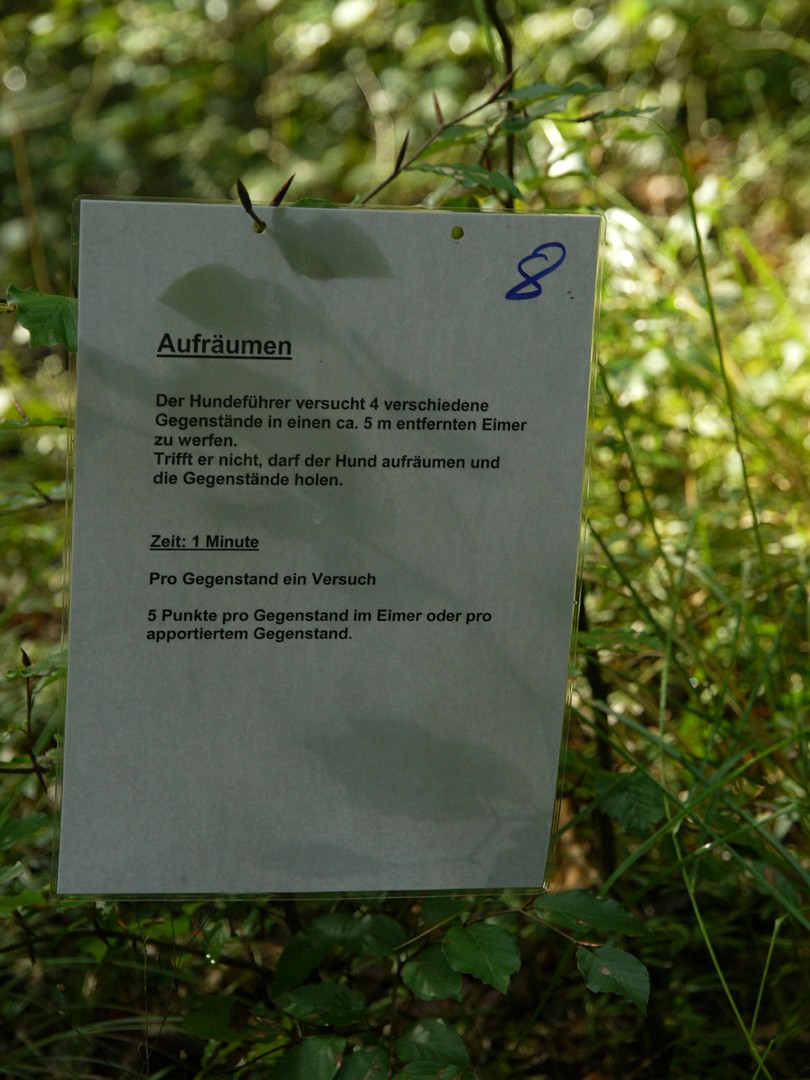 8
Aufräumen
Der Hundeführer versucht 4 verschiedene
Gegenstände in einen ca. 5 m entfernten Eimer
zu werfen.
Trifft er nicht, darf der Hund aufräumen und
die Gegenstände holen.
Zeit: 1 Minute
Pro Gegenstand ein Versuch
5 Punkte pro Gegenstand im Eimer oder pro
apportiertem Gegenstand.